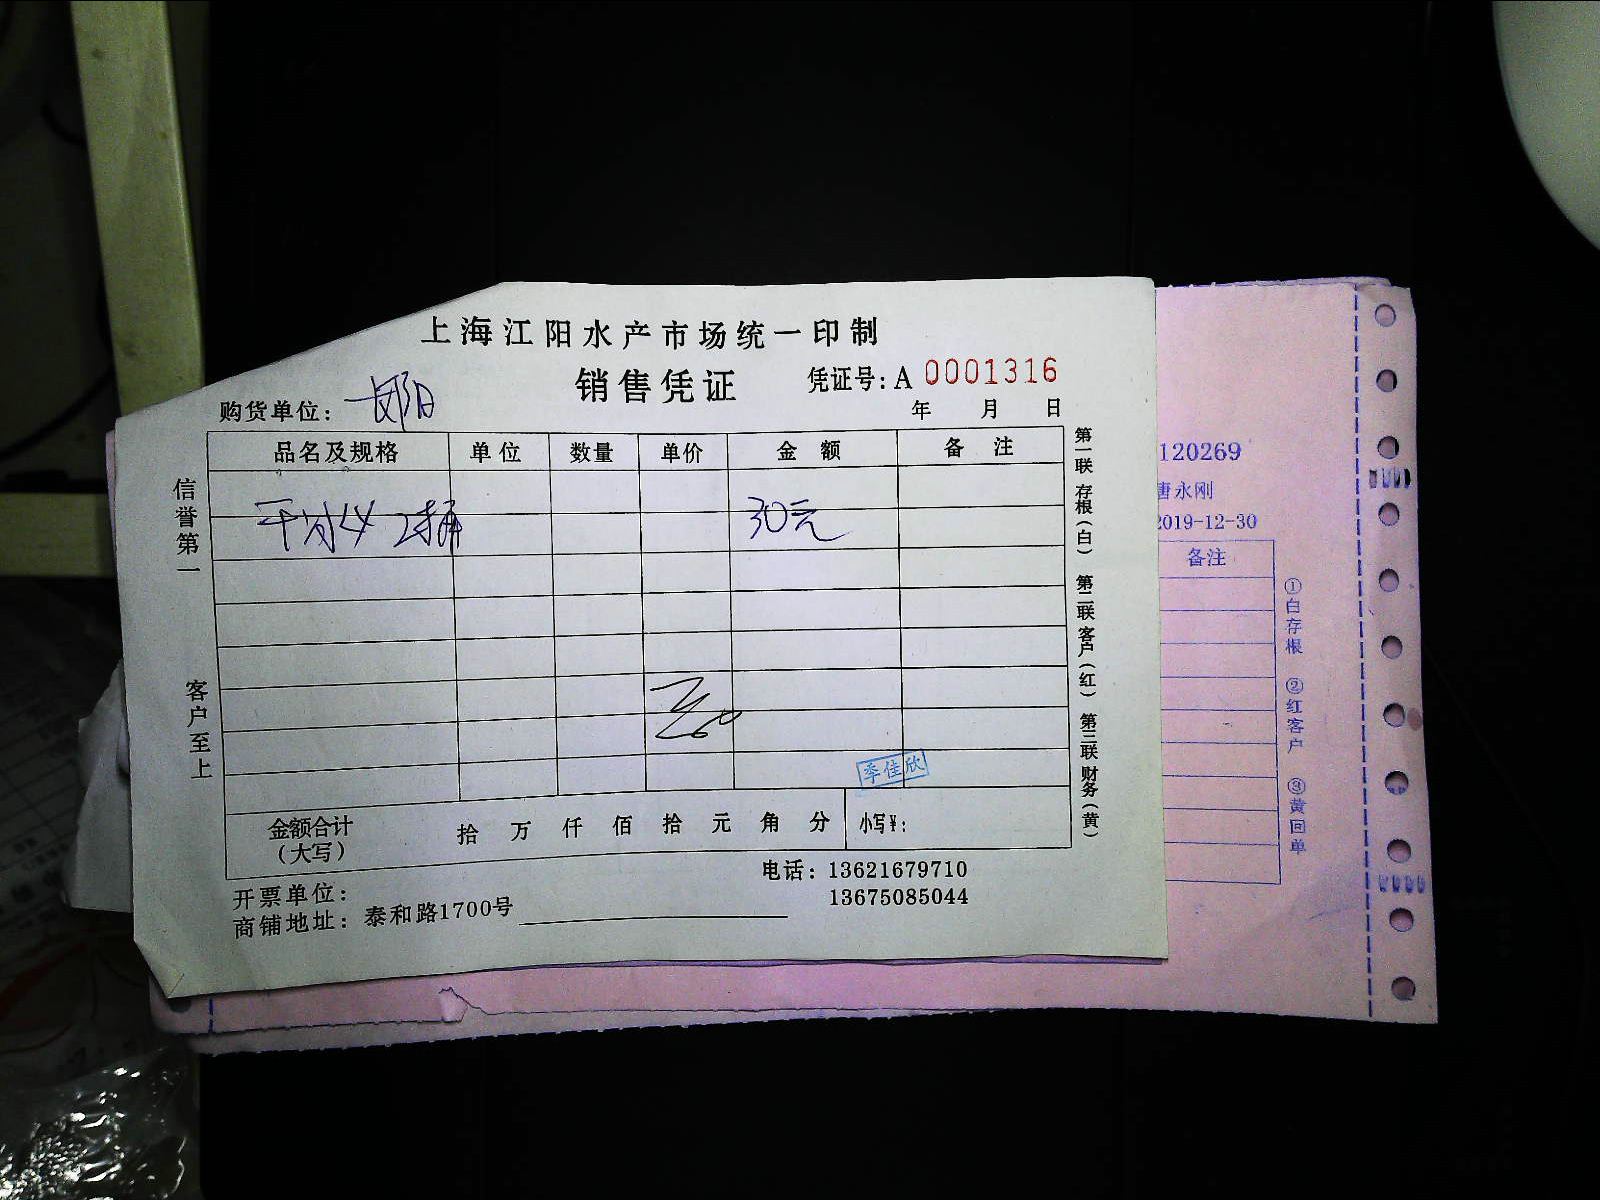 上海江阳水产市场统一印制
销售凭证
凭证号:A 0001316
购货单位:
年 月 日
品名及规格 单位 数量 单价 金额 备注
30元
信誉第一
客户至上
李佳欣
金额合计(大写) 拾 万 仟 佰 拾 元 角 分 小写¥:
开票单位:
电话:13621679710
13675085044
商铺地址:泰和路1700号
第一联 存根(白) 第二联 客户(红) 第三联 财务(黄)
120269
唐永刚
2019-12-30
备注
①白存根 ②红客户 ③黄回单